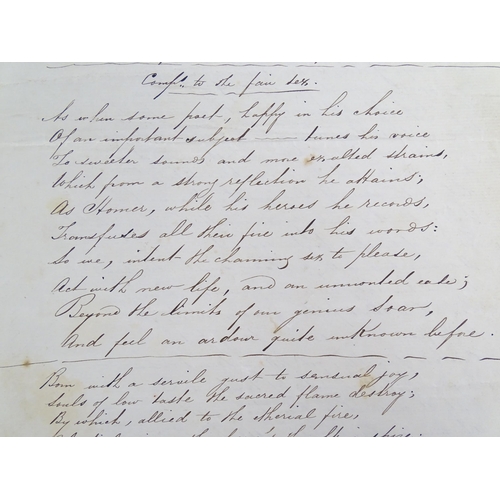 Compts. to the fair sex.
As when some poet, happy in his choice
Of an important subject — tunes his voice
To sweeter sounds and more exalted strains,
Which from a strong reflection he attains;
As Homer, while his heroes he records,
Transfuses all their fire into his words:
So we, intent the charming sex to please,
Act with new life, and an unwonted ease;
Beyond the limits of our genius soar,
And feel an ardour quite unknown before.
Born with a servile gust to sensual joy,
Souls of low taste the sacred flame destroy;
By which, allied to the etherial fire,